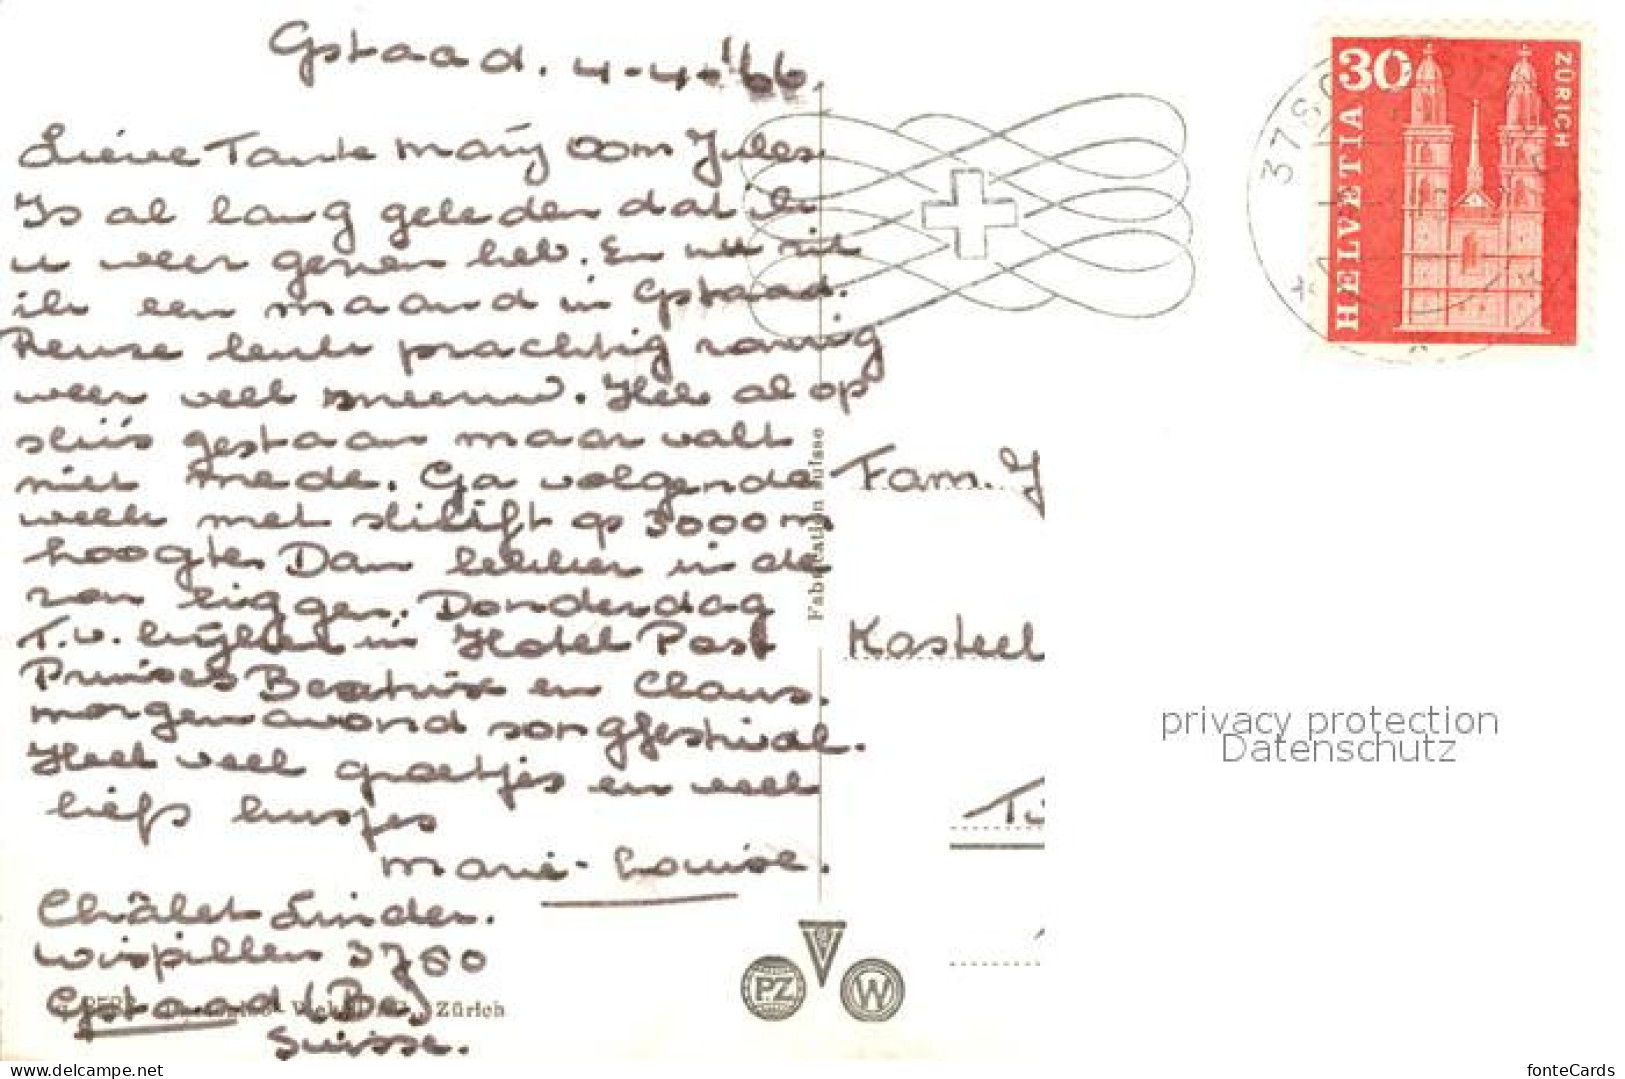 Gstaad. 4-4-'66.
Lieve Tante Marÿ Oom Jules.
Is al lang geleden dat ik
u weer gezien heb. En nu zit
ik een maand in Gstaad.
Reuze leuk prachtig zonnig
weer veel sneeuw. Heb al op
skiis gestaan maar valt
niet mede. Ga volgende
week met skilift op 3000 m
hoogte. Dan lekker in de
zon liggen. Donderdag
T.V. kijken in Hotel Post
Prinses Beatrix en Claus.
morgenavond songfestival.
Heel veel groetjes en veel
liefs kusjes
Marie-Louise.
Châlet Linder.
Wispillen 3780
Gstaad (Be)
Suisse.
Zürich
Fabrikation suisse
PZ
W
HELVETIA
30
ZÜRICH
3780
Fam. J
Kasteel
privacy protection
Datenschutz
www.delcampe.net
fonteCards